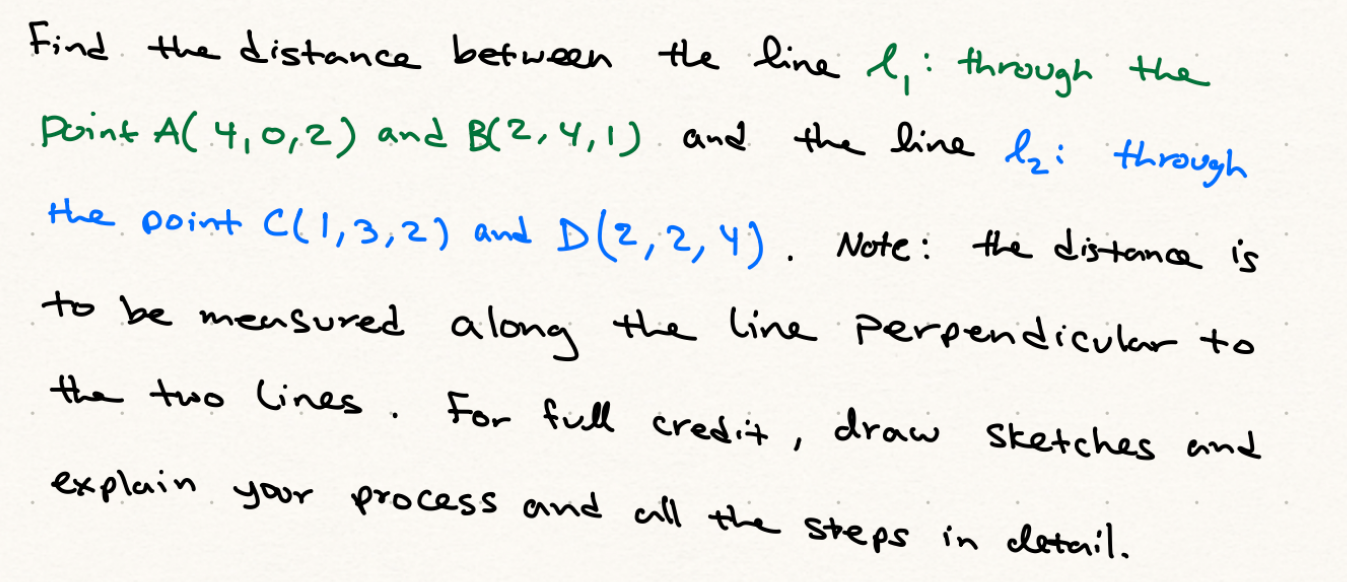 Find the distance between the line l₁: through the
point A(4,0,2) and B(2,4,1) and the line l₂: through
the point C(1,3,2) and D(2,2,4). Note: the distance is
to be measured along the line perpendicular to
the two lines. For full credit, draw sketches and
explain your process and all the steps in detail.